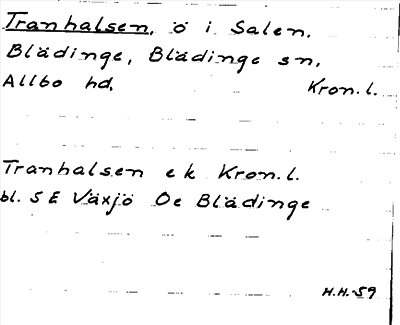 Tranhalsen, ö i Salen.
Blädinge, Blädinge sn,
Allbo hd, Kron. l.
Tranhalsen ek Kron. l.
bl. 5 E Växjö Oe Blädinge
H.H.-59